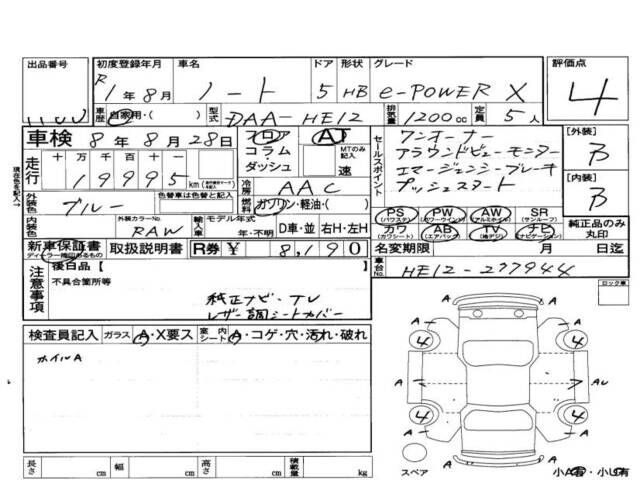 出品番号 初度登録年月 車名 ドア 形状 グレード 評価点
R1年8月 ノート 5 HB e-POWER X 4
車歴 自家用・( ) 型式 DAA-HE12 排気量 1200cc 定員 5人
車検 8年8月28日 フロア AT
コラム・ダッシュ MTのみ記入 速
セールスポイント ワンオーナー
アラウンドビューモニター
エマージェンシーブレーキ
プッシュスタート
[外装] B
[内装] B
走行 十 万 千 百 十 一
19995 km
冷房 AAC
外装色 ブルー 色替車は色替と記入 燃料 ガソリン・軽油・( )
PS (パワステ) PW (パワーウインドウ) AW (アルミホイル) SR (サンルーフ)
カワ (カワシート) AB (エアバック) TV (純テレビ) ナビ (ナビゲーション)
純正品のみ丸印
内装色 外装カラーNo. RAW 輸入車 モデル年式 年・不明 D車・並 右H・左H
新車保証書 取扱説明書 R券 ¥ 8,190
名変期限 月 日迄
車台No. HE12-277944
注意事項 後白品 [ ]
不具合箇所等
純正ナビ・TV
レザー調シートカバー
ロック車
検査員記入 ガラス A・X要ス 室内シート A・コゲ・穴・汚れ・破れ
ホイルA
A A
4 4
A A A AU
4 4
A A
スペア 小A有・小U有
長さ cm 幅 cm 高さ cm 積載量 kg